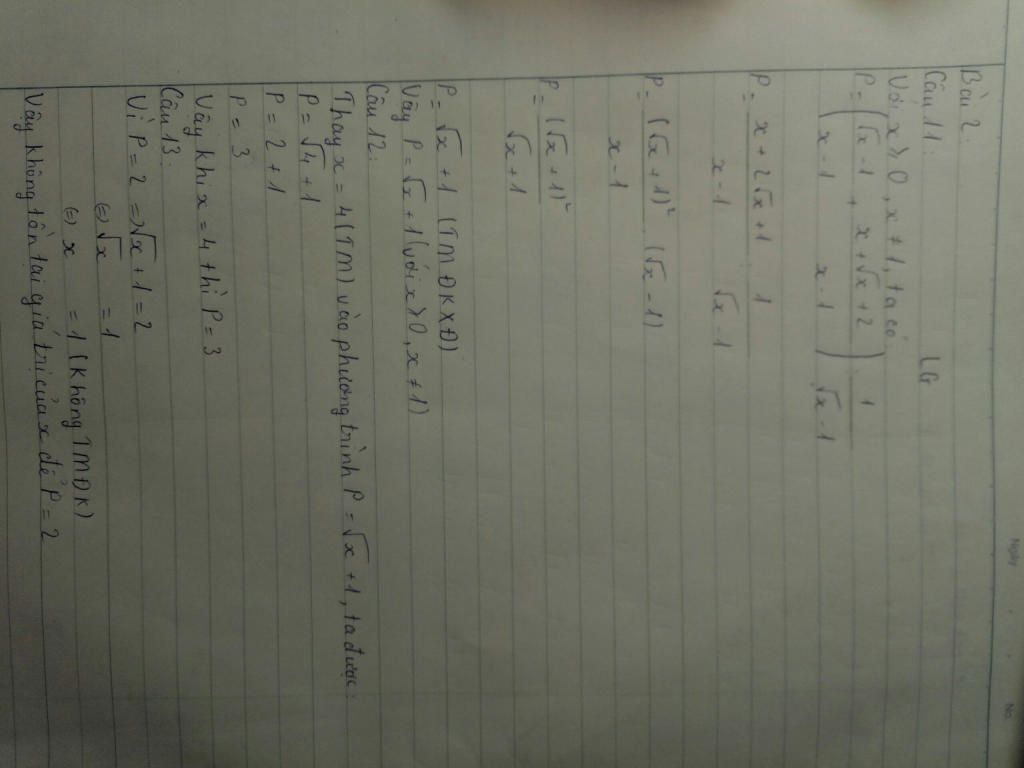 Ngày
No.
Bài 2:
LG
Câu 11:
Với x ≥ 0, x ≠ 1, ta có
P = ( (√x - 1)/(x - 1) + (x + √x + 2)/(x - 1) ) . 1/(√x - 1)
P = (x + 2√x + 1)/(x - 1) . 1/(√x - 1)
P = (√x + 1)²/(x - 1) . (√x - 1)
P = (√x + 1)²/(√x + 1)
P = √x + 1 (TM ĐKXĐ)
Vậy P = √x + 1 (với x ≥ 0, x ≠ 1)
Câu 12:
Thay x = 4 (TM) vào phương trình P = √x + 1, ta được:
P = √4 + 1
P = 2 + 1
P = 3
Vậy khi x = 4 thì P = 3
Câu 13:
Vì P = 2 => √x + 1 = 2
(=) √x = 1
(=) x = 1 (Không TMĐK)
Vậy không tồn tại giá trị của x để P = 2